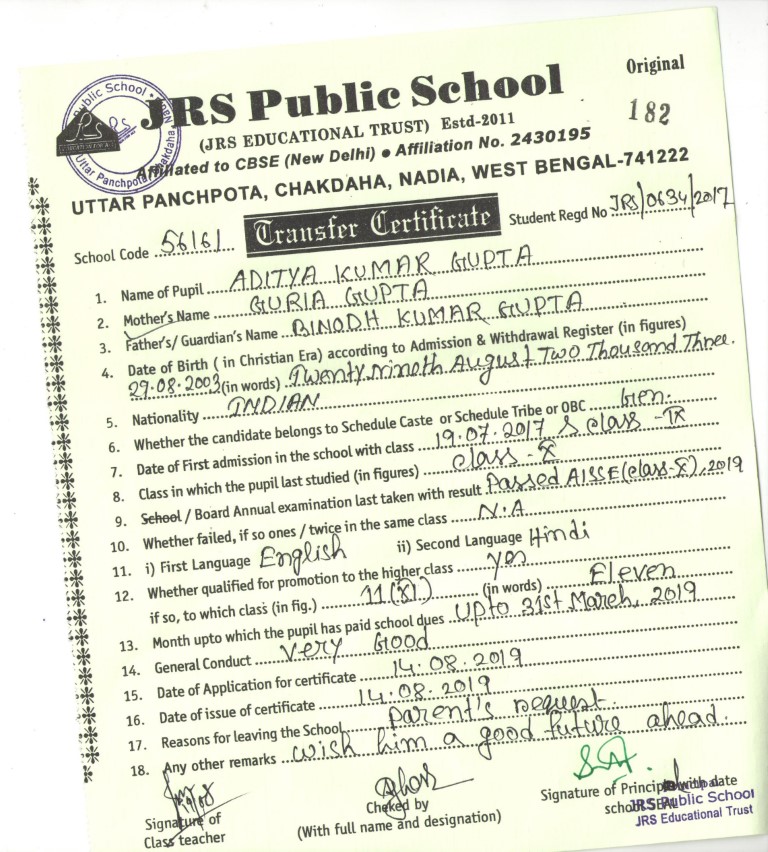 Original
182
JRS Public School
(JRS EDUCATIONAL TRUST) Estd-2011
Affiliated to CBSE (New Delhi) ● Affiliation No. 2430195
UTTAR PANCHPOTA, CHAKDAHA, NADIA, WEST BENGAL-741222
School Code 56161 Transfer Certificate Student Regd No JRS/0634/2017
1. Name of Pupil ADITYA KUMAR GUPTA
2. Mother's Name GURIA GUPTA
3. Father's/ Guardian's Name BINODH KUMAR GUPTA
4. Date of Birth ( in Christian Era) according to Admission & Withdrawal Register (in figures)
29.08.2003 (in words) Twenty nineth August Two Thousand Three.
5. Nationality INDIAN
6. Whether the candidate belongs to Schedule Caste or Schedule Tribe or OBC Gen.
7. Date of First admission in the school with class 19.07.2017 & class - IX
8. Class in which the pupil last studied (in figures) class - X
9. School / Board Annual examination last taken with result Passed AISSE (class-X), 2019
10. Whether failed, if so ones / twice in the same class N.A
11. i) First Language English ii) Second Language Hindi
12. Whether qualified for promotion to the higher class yes
if so, to which class (in fig.) 11 (XI) (in words) Eleven
13. Month upto which the pupil has paid school dues Upto 31st March, 2019
14. General Conduct Very Good
15. Date of Application for certificate 14.08.2019
16. Date of issue of certificate 14.08.2019
17. Reasons for leaving the School parent's request.
18. Any other remarks wish him a good future ahead.
Signature of
Class teacher
Cheked by
(With full name and designation)
Signature of Principal with date
school SEAL
JRS Public School
JRS Educational Trust